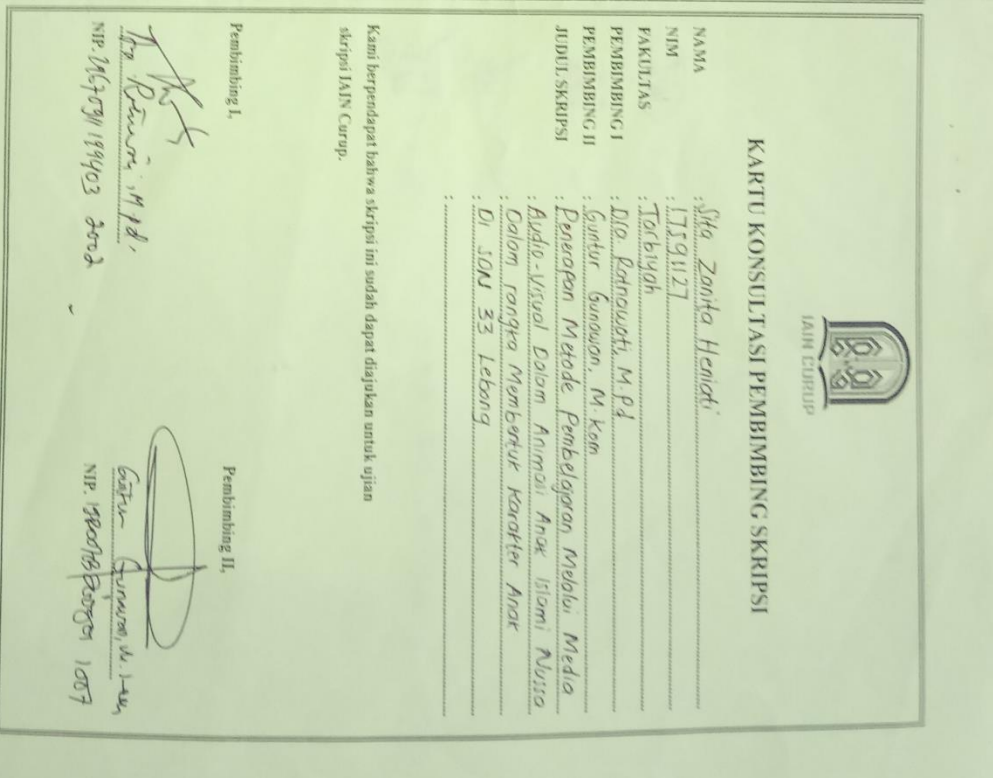 IAIN CURUP
KARTU KONSULTASI PEMBIMBING SKRIPSI
NAMA : Sita Zanita Heniati
NIM : 17591127
FAKULTAS : Tarbiyah
PEMBIMBING I : Dra. Ratnawati, M.Pd
PEMBIMBING II : Guntur Gunawan, M.Kom
JUDUL SKRIPSI : Penerapan Metode Pembelajaran Melalui Media
: Audio-Visual Dalam Animasi Anak Islami Nussa
: Dalam rangka Membentuk Karakter Anak
: Di SDN 33 Lebong
:
Kami berpendapat bahwa skripsi ini sudah dapat diajukan untuk ujian
skripsi IAIN Curup.
Pembimbing I, Pembimbing II,
M.Pd. Guntur Gunawan, M. Kom
NIP. 19670911 199403 2002 NIP.